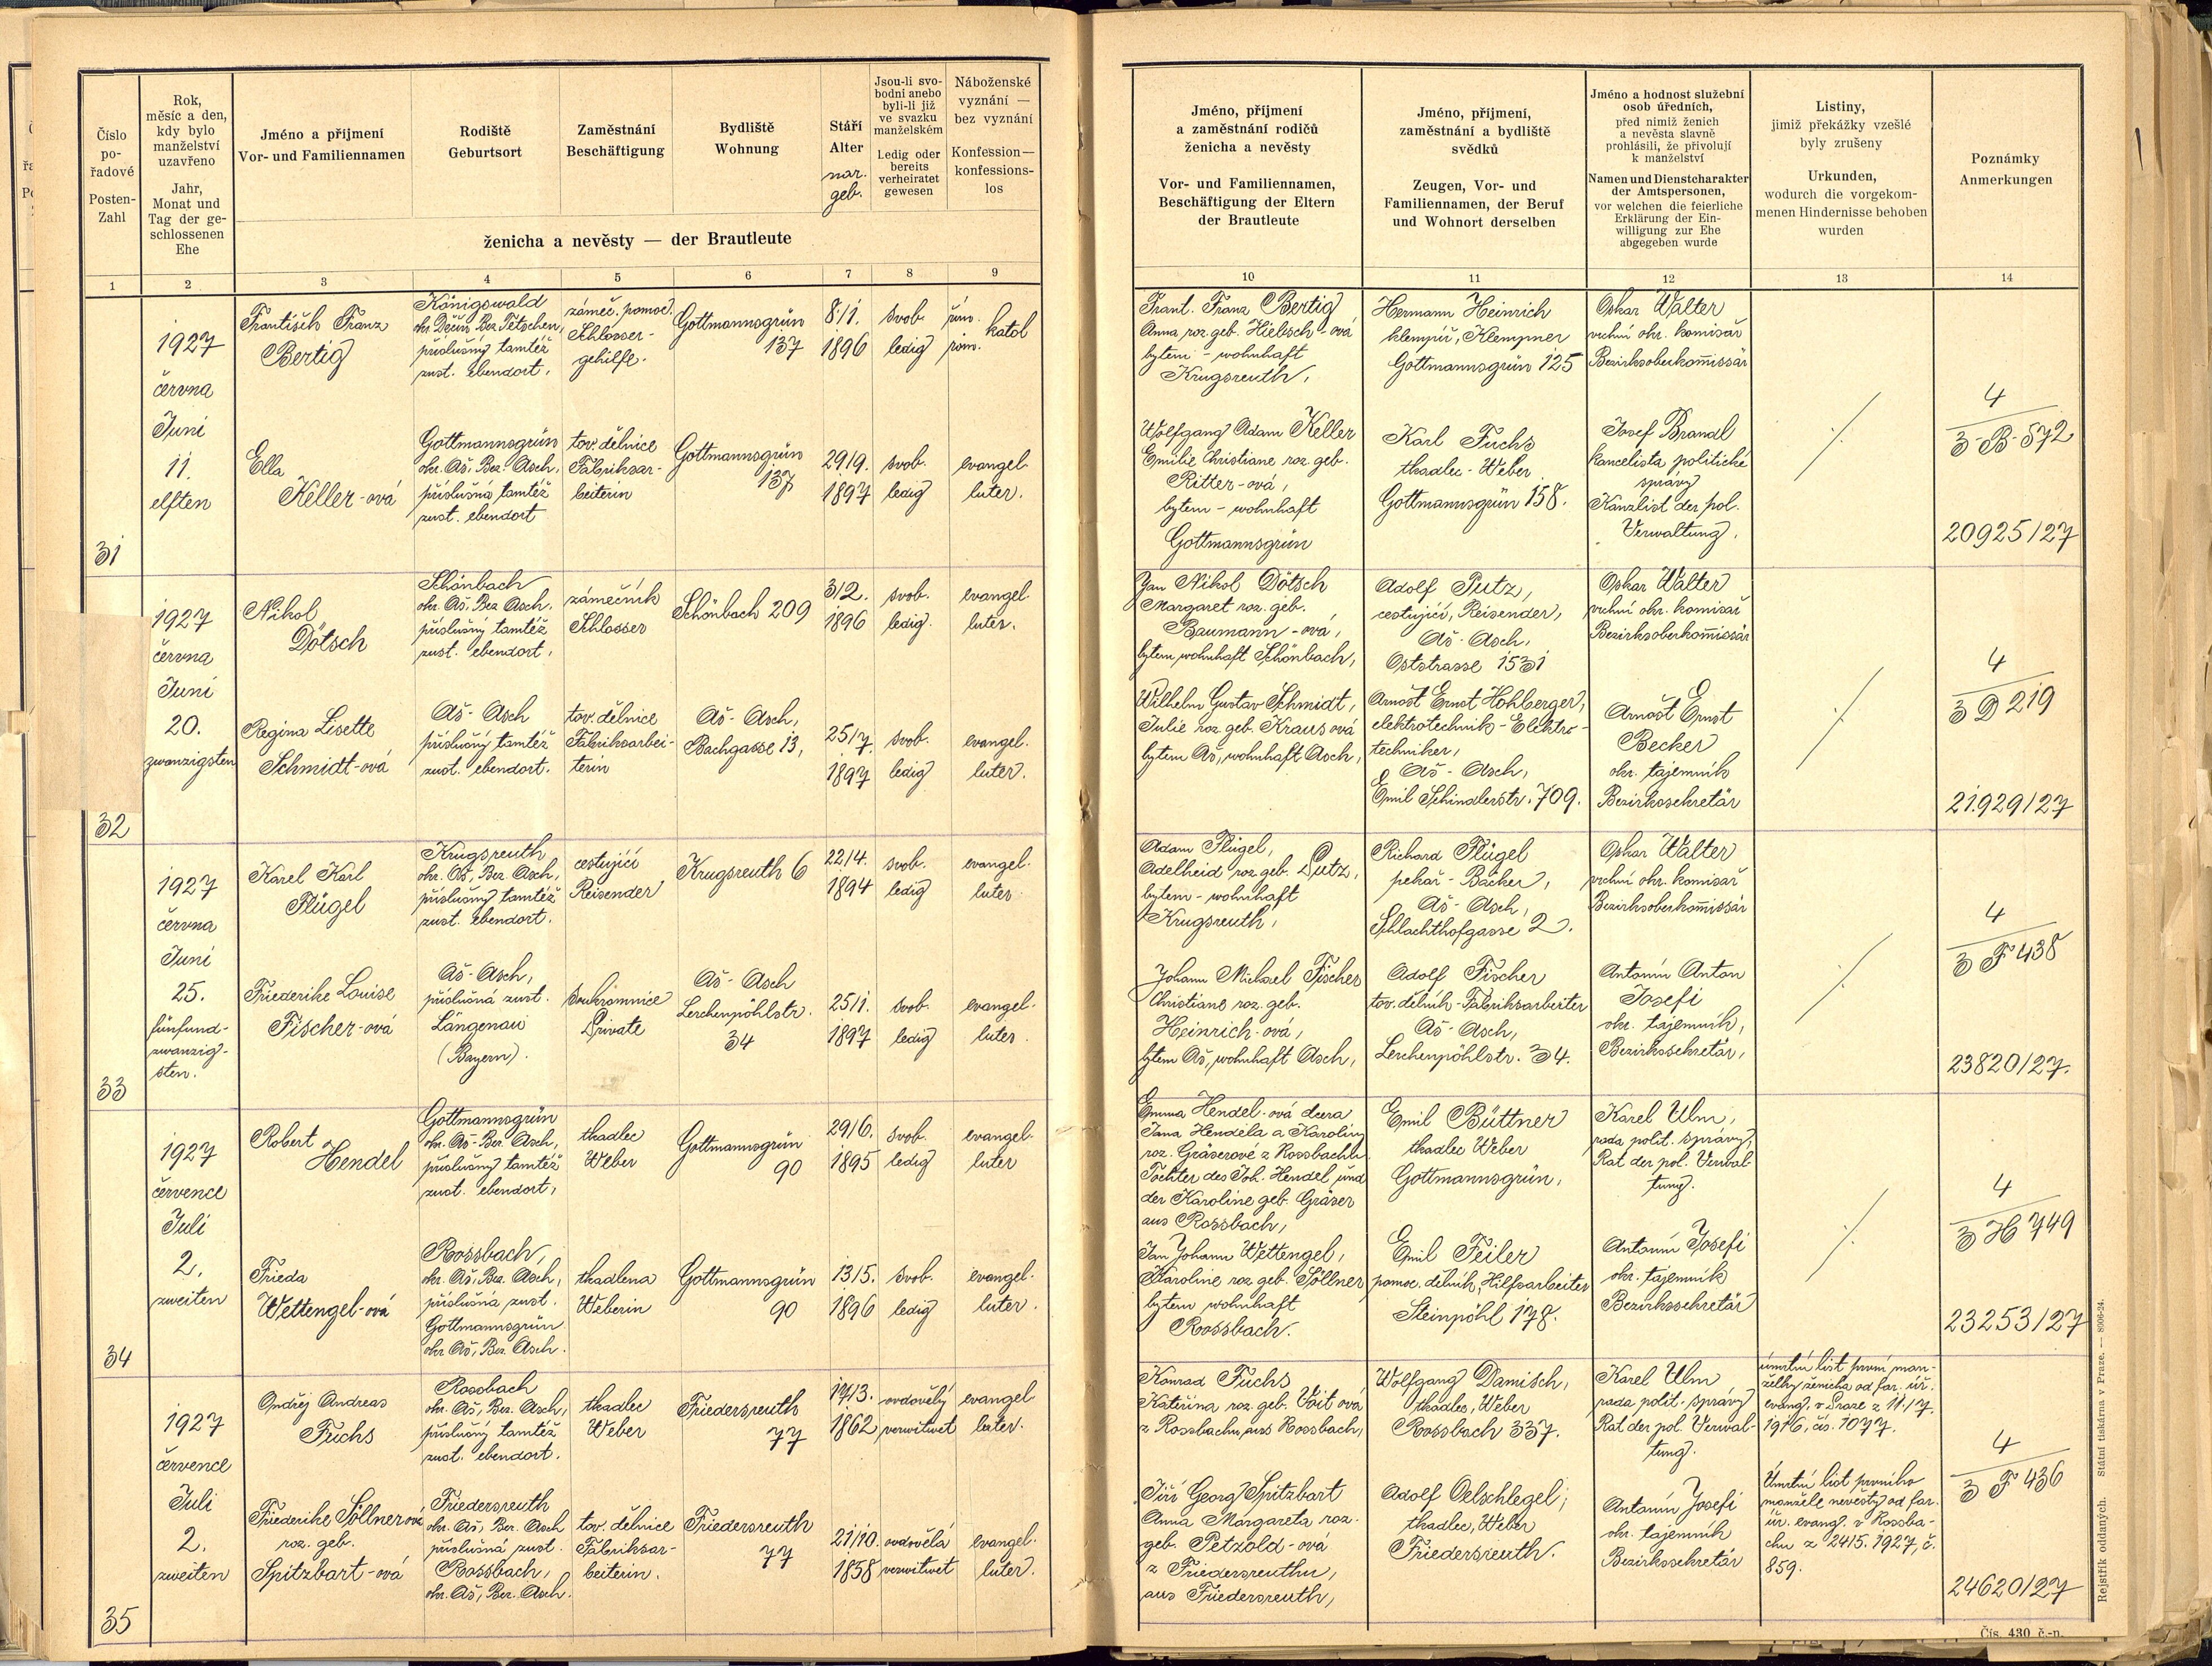 Číslo
po-
řadové
Posten-
Zahl
Rok,
měsíc a den,
kdy bylo
manželství
uzavřeno
Jahr,
Monat und
Tag der ge-
schlossenen
Ehe
Jméno a příjmení
Vor- und Familiennamen
Rodiště
Geburtsort
Zaměstnání
Beschäftigung
Bydliště
Wohnung
Stáří
Alter
nar.
geb.
Jsou-li svo-
bodni anebo
byli-li již
ve svazku
manželském
Ledig oder
bereits
verheiratet
gewesen
Náboženské
vyznání —
bez vyznání
Konfession —
konfessions-
los
ženicha a nevěsty — der Brautleute
Jméno, příjmení
a zaměstnání rodičů
ženicha a nevěsty
Vor- und Familiennamen,
Beschäftigung der Eltern
der Brautleute
Jméno, příjmení,
zaměstnání a bydliště
svědků
Zeugen, Vor- und
Familiennamen, der Beruf
und Wohnort derselben
Jméno a hodnost služební
osob úředních,
před nimiž ženich
a nevěsta slavně
prohlásili, že přivolují
k manželství
Namen und Dienstcharakter
der Amtspersonen,
vor welchen die feierliche
Erklärung der Ein-
willigung zur Ehe
abgegeben wurde
Listiny,
jimiž překážky vzešlé
byly zrušeny
Urkunden,
wodurch die vorgekom-
menen Hindernisse behoben
wurden
Poznámky
Anmerkungen
1 2 3 4 5 6 7 8 9 10 11 12 13 14
31
1927
června
Juni
11.
elften
František Franz
Bertig
Königswald
okr. Děčín Bez. Tetschen,
příslušný tamtéž
zust. ebendort,
zámeč. pomoc.
Schlosser-
gehilfe.
Gottmannsgrün
137
8/1.
1896
svob.
ledig
řím. katol
röm.
Frant. Franz Bertig
Anna roz. geb. Hiebsch-ová
bytem - wohnhaft
Krugsreuth,
Hermann Heinrich
klempíř, Klempner
Gottmannsgrün 125
Oskar Walter
vrchní okr. komisař
Bezirksoberkommissär
Ella
Keller-ová
Gottmannsgrün
okr. Aš, Bez. Asch,
příslušná tamtéž
zust. ebendort
tov. dělnice
Fabriksar-
beiterin
Gottmannsgrün
137
29/9.
1897
svob.
ledig
evangel.
luter.
Wolfgang Adam Keller
Emilie Christiane roz. geb.
Ritter-ová,
bytem - wohnhaft
Gottmannsgrün
Karl Fuchs
tkadlec - Weber
Gottmannsgrün 158.
Josef Brandl
kancelista politické
správy
Kanzlist der pol.
Verwaltung.
4
3-B-572
20925/27
32
1927
června
Juni
20.
zwanzigsten
Nikol
Dötsch
Schönbach
okr. Aš, Bez. Asch,
příslušný tamtéž
zust. ebendort,
zámečník
Schlosser
Schönbach 209
3/2.
1896
svob.
ledig.
evangel.
luter.
Jan Nikol Dötsch
Margaret roz. geb.
Baumann-ová,
bytem, wohnhaft Schönbach,
Adolf Putz,
cestující, Reisender,
Aš - Asch,
Oststrasse 1531
Oskar Walter
vrchní okr. komisař
Bezirksoberkommissär
Regina Lisette
Schmidt-ová
Aš - Asch
příslušný tamtéž
zust. ebendort.
tov. dělnice
Fabriksarbei-
terin
Aš - Asch,
Bachgasse 13,
25/7.
1897
svob.
ledig
evangel.
luter.
Wilhelm Gustav Schmidt,
Julie roz. geb. Kraus ová
bytem Aš, wohnhaft Asch,
Arnošt Ernst Hohlberger,
elektrotechnik - Elektro-
techniker,
Aš - Asch,
Emil Schindlerstr. 709.
Arnošt Ernst
Becker
okr. tajemník
Bezirkssekretär
4
3 D 219
21.929/27
33
1927
června
Juni
25.
fünfund-
zwanzig-
sten.
Karel Karl
Flügel
Krugsreuth
okr. Aš, Bez. Asch,
příslušný tamtéž
zust. ebendort.
cestující
Reisender
Krugsreuth 6
22/4.
1894
svob.
ledig
evangel.
luter.
Adam Flügel,
Adelheid roz. geb. Lutz,
bytem - wohnhaft
Krugsreuth,
Richard Flügel
pekař - Bäcker,
Aš - Asch,
Schlachthofgasse 2.
Oskar Walter
vrchní okr. komisař
Bezirksoberkommissär
Friederike Louise
Fischer-ová
Aš - Asch,
příslušná zust.
Längenau
(Bayern).
soukromnice
Private
Aš - Asch
Lerchenpöhlstr.
34
25/1.
1897
svob.
ledig
evangel.
luter.
Johann Michael Fischer
Christiane roz. geb.
Heinrich-ová,
bytem Aš, wohnhaft Asch,
Adolf Fischer
tov. dělník - Fabriksarbeiter
Aš - Asch,
Lerchenpöhlstr. 34.
Antonín Anton
Josefi
okr. tajemník,
Bezirkssekretär,
4
3 F 438
23820/27.
34
1927
července
Juli
2.
zweiten
Robert
Hendel
Gottmannsgrün
okr. Aš - Bez. Asch,
příslušný tamtéž
zust. ebendort,
tkadlec
Weber
Gottmannsgrün
90
29/6.
1895
svob.
ledig
evangel.
luter
Emma Hendel-ová dcera
Jana Hendela a Karolíny
roz. Gräserové z Rossbachu
Tochter des Joh. Hendel und
der Karoline geb. Gräser
aus Rossbach,
Emil Büttner
tkadlec Weber
Gottmannsgrün,
Karel Ulm,
rada polit. správy,
Rat der pol. Verwal-
tung.
Frieda
Wettengel-ová
Rossbach,
okr. Aš, Bez. Asch,
příslušná zust.
Gottmannsgrün
okr. Aš, Bez. Asch.
tkadlena
Weberin
Gottmannsgrün
90
13/5.
1896
svob.
ledig
evangel.
luter.
Jan Johann Wettengel,
Karoline roz. geb. Söllner
bytem wohnhaft
Rossbach.
Emil Feiler
pomoc. dělník, Hilfsarbeiter
Steinpöhl 178.
Antonín Josefi
okr. tajemník
Bezirkssekretär
4
3 H 749
23253/27
35
1927
července
Juli
2.
zweiten
Ondřej Andreas
Fuchs
Rossbach
okr. Aš, Bez. Asch,
příslušný tamtéž
zust. ebendort.
tkadlec
Weber
Friedersreuth
77
17/3.
1862
ovdovělý
verwitwet
evangel.
luter.
Konrad Fuchs
Kateřina roz. geb. Voit ová
z Rossbachu, aus Rossbach,
Wolfgang Damisch,
tkadlec, Weber
Rossbach 337.
Karel Ulm
rada polit. správy
Rat der pol. Verwal-
tung.
úmrtní list první man-
želky ženicha od far. úř.
evang. v Praze z 11./7.
1916, čís. 1077.
Friederike Söllnerová
roz. geb.
Spitzbart-ová
Friedersreuth
okr. Aš, Bez. Asch
příslušná zust.
Rossbach,
okr. Aš, Bez. Asch.
tov. dělnice
Fabriksar-
beiterin.
Friedersreuth
77
21/10.
1858
ovdovělá
verwitwet
evangel.
luter.
Jiří Georg Spitzbart
Anna Margareta roz.
geb. Petzold-ová
z Friedersreuthu,
aus Friedersreuth,
Adolf Oelschlegel,
tkadlec, Weber
Friedersreuth.
Antonín Josefi
okr. tajemník
Bezirkssekretär
Úmrtní list prvního
manžela nevěsty od far.
úř. evang. v Rossba-
chu z 24/5. 1927, č.
859.
4
3 F 436
24620/27
Rejstřík oddaných. Státní tiskárna v Praze. — 8006-24.
Čís. 430 č.-n.